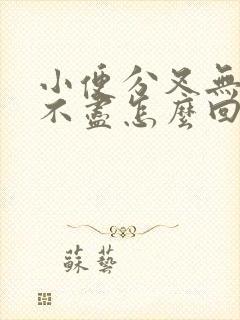 小便分叉無
不盡怎麼回
蘇藝